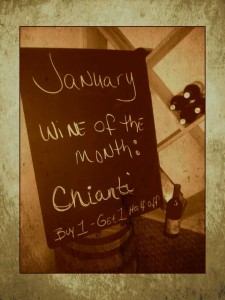 January
Wine of the
month:
Chianti
Buy 1 - Get 1 Half off